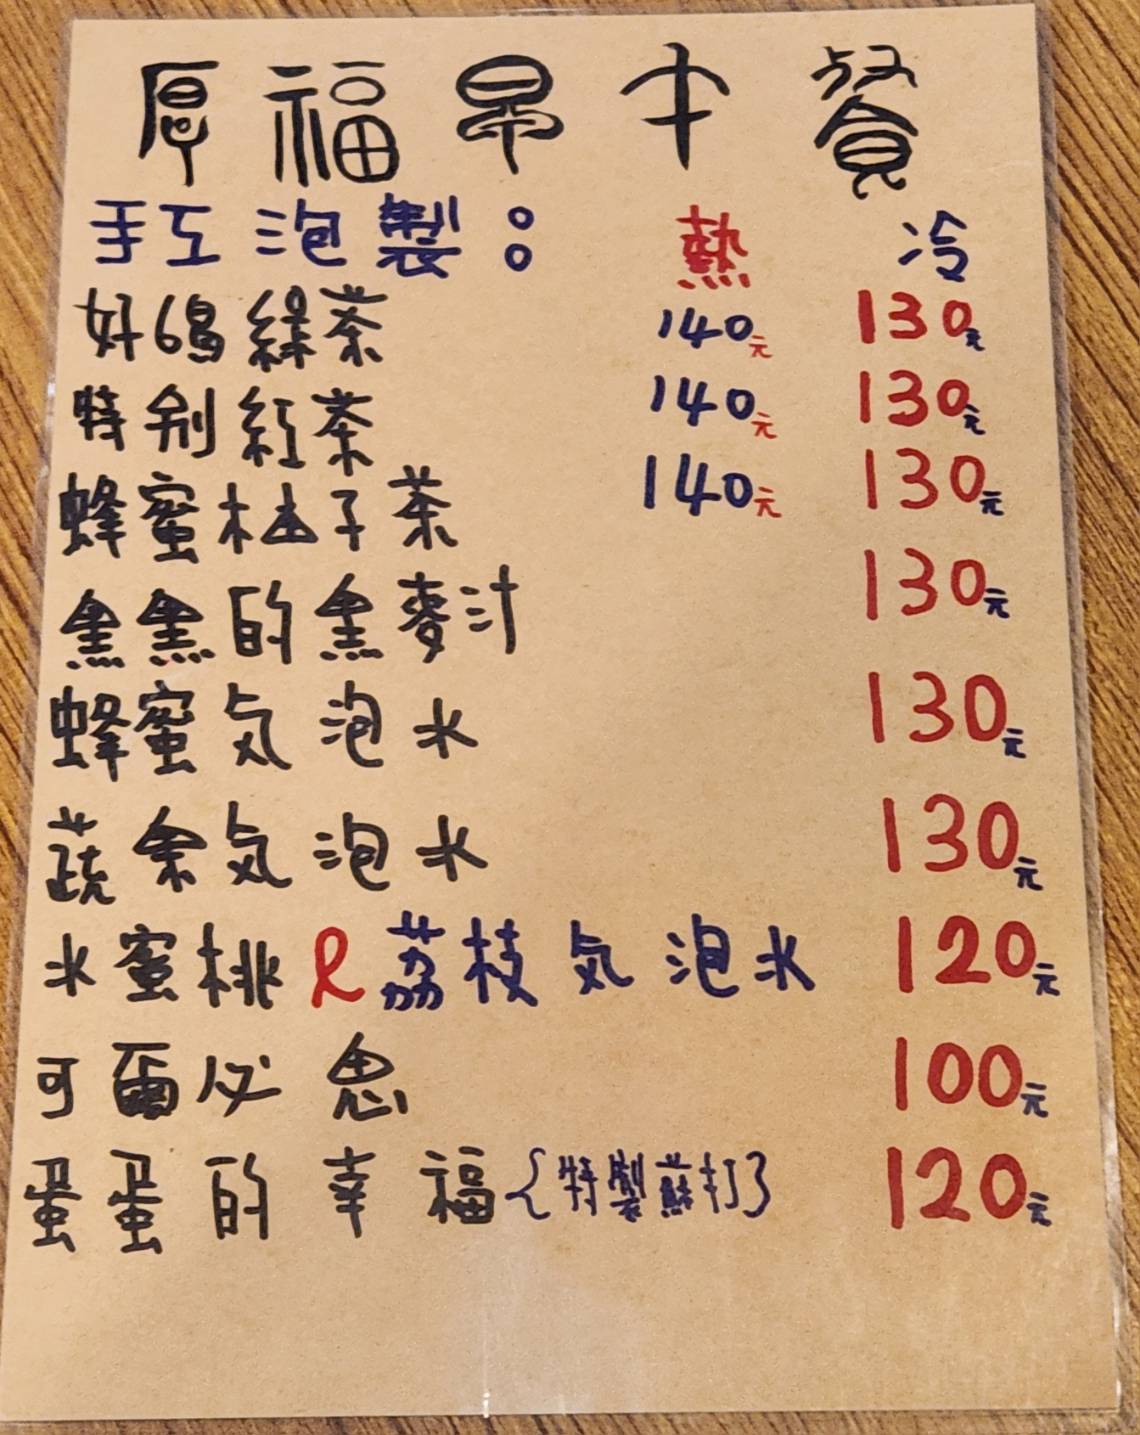 厚福早午餐
手工泡製： 熱 冷
好鴆綠茶 140元 130元
特別紅茶 140元 130元
蜂蜜柚子茶 140元 130元
黑黑的黑麥汁 130元
蜂蜜気泡水 130元
蔬果気泡水 130元
水蜜桃R荔枝気泡水 120元
可爾必思 100元
蛋蛋的幸福{特製蘇打} 120元